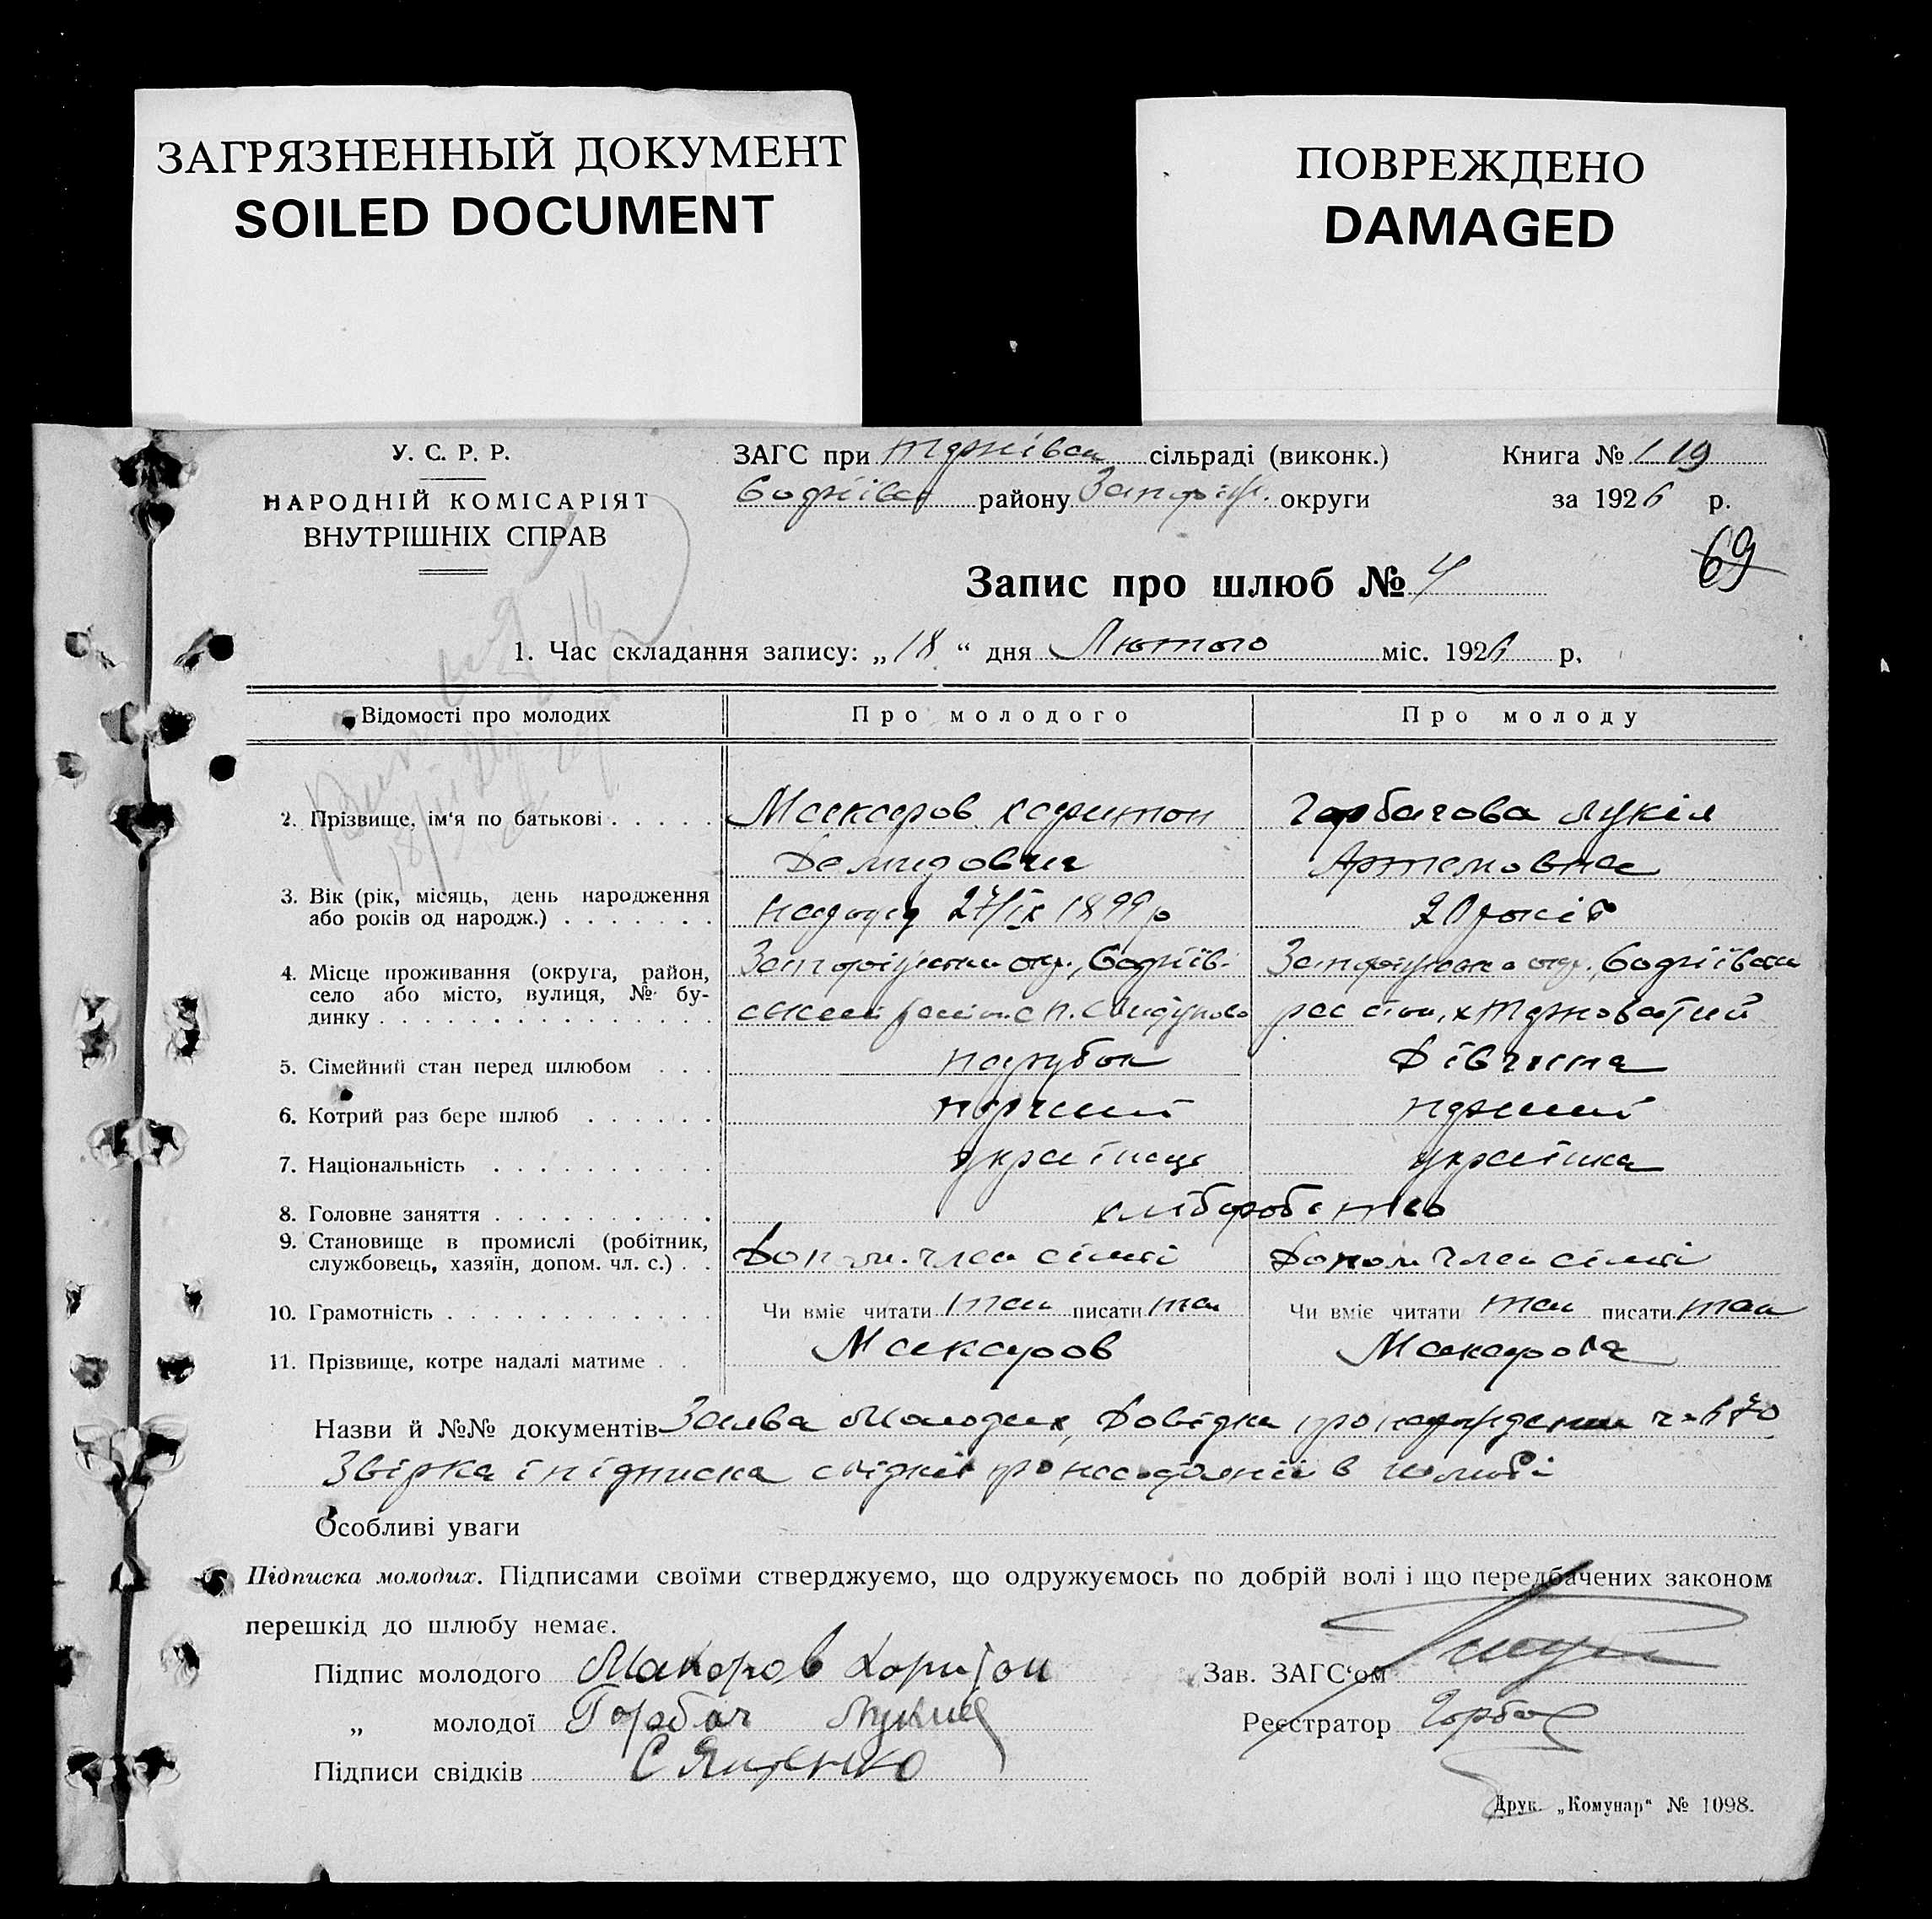 ЗАГРЯЗНЕННЫЙ ДОКУМЕНТ
SOILED DOCUMENT
ПОВРЕЖДЕНО
DAMAGED
У. С. Р. Р.
НАРОДНІЙ КОМІСАРІЯТ
ВНУТРІШНІХ СПРАВ
ЗАГС при сільраді (виконк.)
району округи
Книга № 119
за 1926 р.
69
Запис про шлюб № 4
1. Час складання запису: „18“ дня Лютого міс. 1926 р.
Відомості про молодих Про молодого Про молоду
2. Прізвище, ім'я по батькові . . . . . Макаров Харитон Горбачова Лукія
Демидович Артемовна
3. Вік (рік, місяць, день народження
або років од народж.) . . . . . . . 27/IX 1899 р 20 років
4. Місце проживання (округа, район,
село або місто, вулиця, № бу-
динку . . . . . . . . . . . . . . .
5. Сімейний стан перед шлюбом . . . парубок Дівчина
6. Котрий раз бере шлюб . . . . . . перший перший
7. Національність . . . . . . . . . . українець українка
8. Головне заняття . . . . . . . . . . хліборобство
9. Становище в промислі (робітник,
службовець, хазяїн, допом. чл. с.) . . Допом. член сімьї Допом член сімьї
10. Грамотність . . . . . . . . . . . . Чи вміє читати так писати так Чи вміє читати так писати так
11. Прізвище, котре надалі матиме . . Макаров Макарова
Назви й №№ документів Заява Молодих, Довідка про 670
Звірка і підписка свідків про в
Особливі уваги
Підписка молодих. Підписами своїми стверджуємо, що одружуємось по добрій волі і що передбачених законом
перешкід до шлюбу немає.
Підпис молодого Макаров Харитон
„ молодої Горбач
Підписи свідків С Ященко
Зав. ЗАГС'ом
Реєстратор Горбач
Друк. „Комунар“ № 1098.